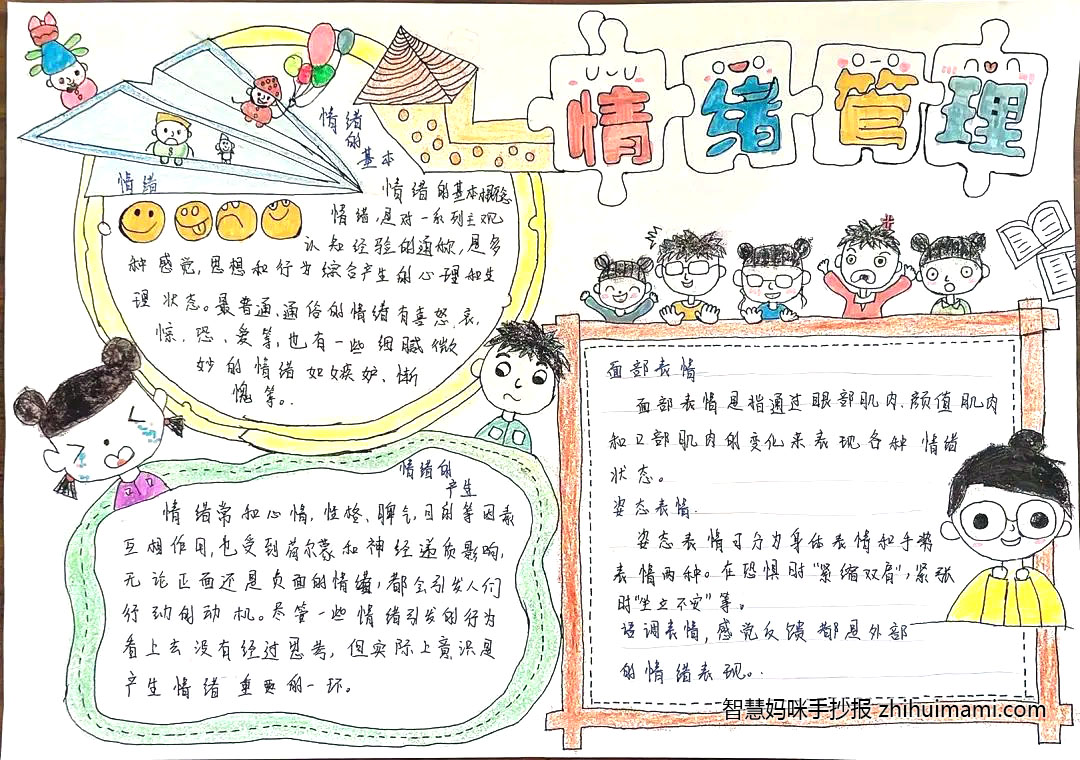 情绪管理
情绪
的
基本
情绪
情绪的基本概念
情绪,是对一系列主观
认知经验的通称,是多
种感觉,思想和行为综合产生的心理和生
理状态。最普通、通俗的情绪有喜、怒、哀、
惊、恐、爱等,也有一些细腻微
妙的情绪如嫉妒、惭
愧等。
情绪的
产生
情绪常和心情,性格、脾气,目的等因素
互相作用,也受到荷尔蒙和神经递质影响,
无论正面还是负面的情绪,都会引发人们
行动的动机。尽管一些情绪引发的行为
看上去没有经过思考,但实际上意识是
产生情绪重要的一环。
面部表情
面部表情是指通过眼部肌肉、颜值肌肉
和口部肌肉的变化来表现各种情绪
状态。
姿态表情.
姿态表情可分为身体表情和手势
表情两种。在恐惧时"紧缩双肩",紧张
时"坐立不安"等。
语调表情,感觉反馈都是外部
的情绪表现。.
智慧妈咪手抄报 zhihuimami.com